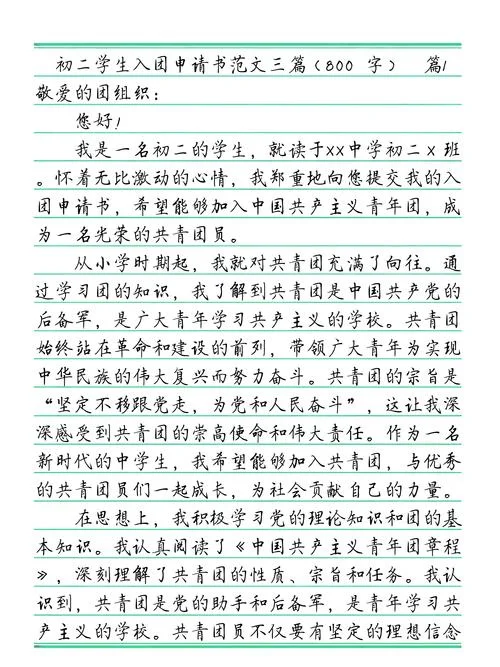 初二学生入团申请书范文三篇(800 字) 篇1
敬爱的团组织:
您好!
我是一名初二的学生,就读于xx中学初二 x 班
。怀着无比激动的心情,我郑重地向您提交我的入
团申请书,希望能够加入中国共产主义青年团,成
为一名光荣的共青团员。
从小学时期起,我就对共青团充满了向往。通
过学习团的知识,我了解到共青团是中国共产党的
后备军,是广大青年学习共产主义的学校。共青团
始终站在革命和建设的前列,带领广大青年为实现
中华民族的伟大复兴而努力奋斗。共青团的宗旨是
“坚定不移跟党走,为党和人民奋斗”,这让我深
深感受到共青团的崇高使命和伟大责任。作为一名
新时代的中学生,我希望能够加入共青团,与优秀
的共青团员们一起成长,为社会贡献自己的力量。
在思想上,我积极学习党的理论知识和团的基
本知识。我认真阅读了《中国共产主义青年团章程
》,深刻理解了共青团的性质、宗旨和任务。我认
识到,共青团是党的助手和后备军,是青年学习共
产主义的学校。共青团员不仅要有坚定的理想信念